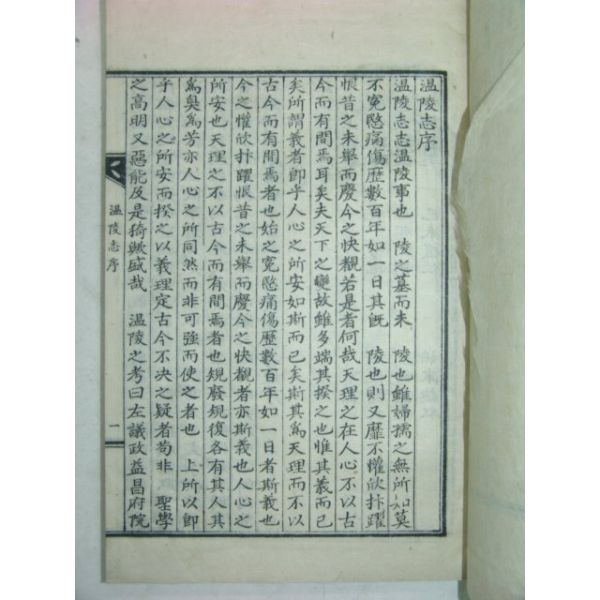 溫陵志序
溫陵志志溫陵事也　陵之墓而未　陵也雖婦孺之無所知莫
不寃慜痛傷歷數百年如一日其旣　陵也則又靡不懽欣抃躍
恨昔之未舉而慶今之快覩若是者何哉天理之在人心不以古
今而有間焉耳矣夫天下之變故雖多端其揆之也惟其義而已
矣所謂義者卽乎人心之所安如斯而已矣斯其爲天理而不以
古今而有間焉者也始之寃慜痛傷歷數百年如一日者斯義也
今之懽欣抃躍恨昔之未舉而慶今之快覩者亦斯義也人心之
所安也天理之不以古今而有間焉者也規廢規復各有其人其
爲臭爲芳亦人心之所同然而非可強而使之者也　上所以卽
乎人心之所安而揆之以義理定古今不决之疑者苟非　聖學
之高明又惡能及是猗歟盛哉　溫陵之考曰左議政益昌府院
溫陵志序
一